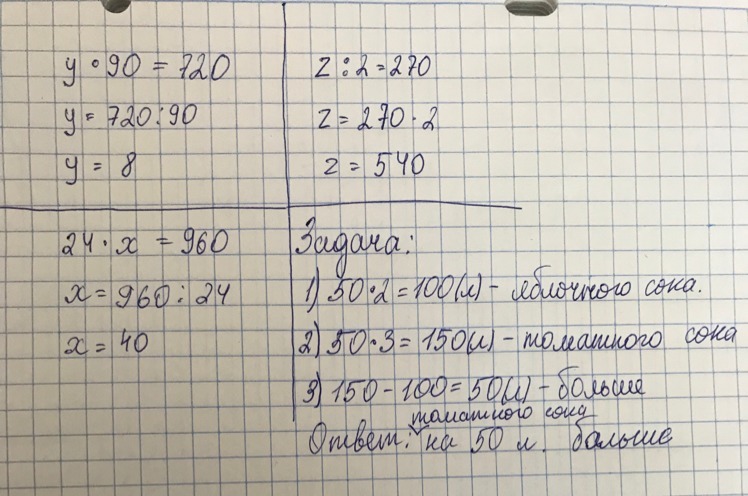 y • 90 = 720
y = 720 : 90
y = 8
z : 2 = 270
z = 270 · 2
z = 540
24 · x = 960
x = 960 : 24
x = 40
Задача:
1) 50 · 2 = 100 (л) - яблочного сока.
2) 50 · 3 = 150 (л) - томатного сока
3) 150 - 100 = 50 (л) - больше
томатного сока
Ответ: на 50 л. больше